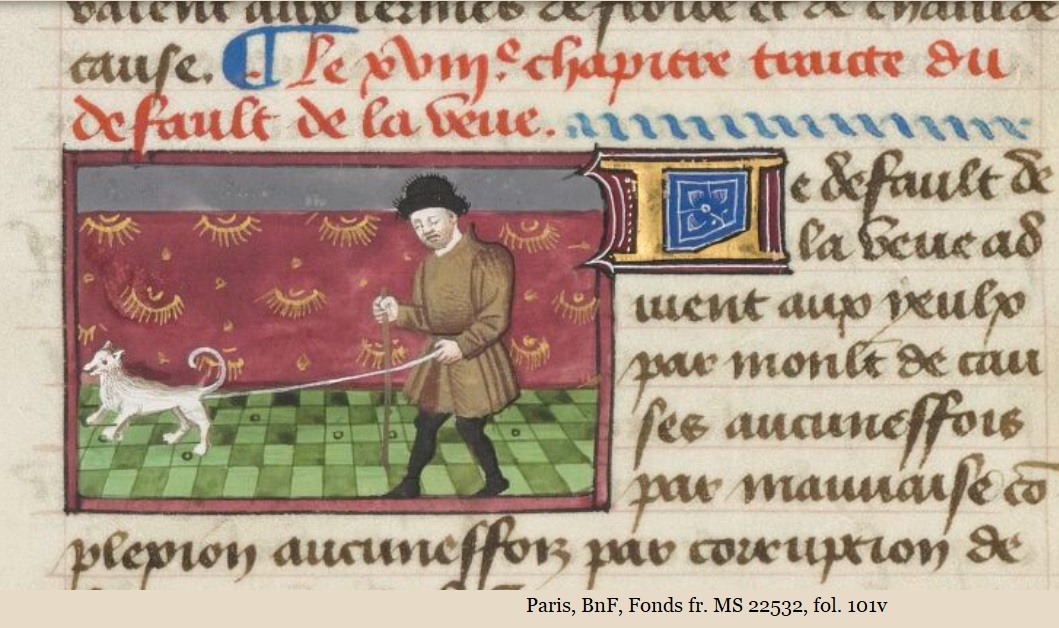 cause. ¶ Le xviij.e chapitre traicte du
default de la veue.
Le default de
la veue ad
uient aux yeulx
par moult de cau
ses aucuneffois
par mauuaise cō
plexion aucuneffois par corruption de
Paris, BnF, Fonds fr. MS 22532, fol. 101v